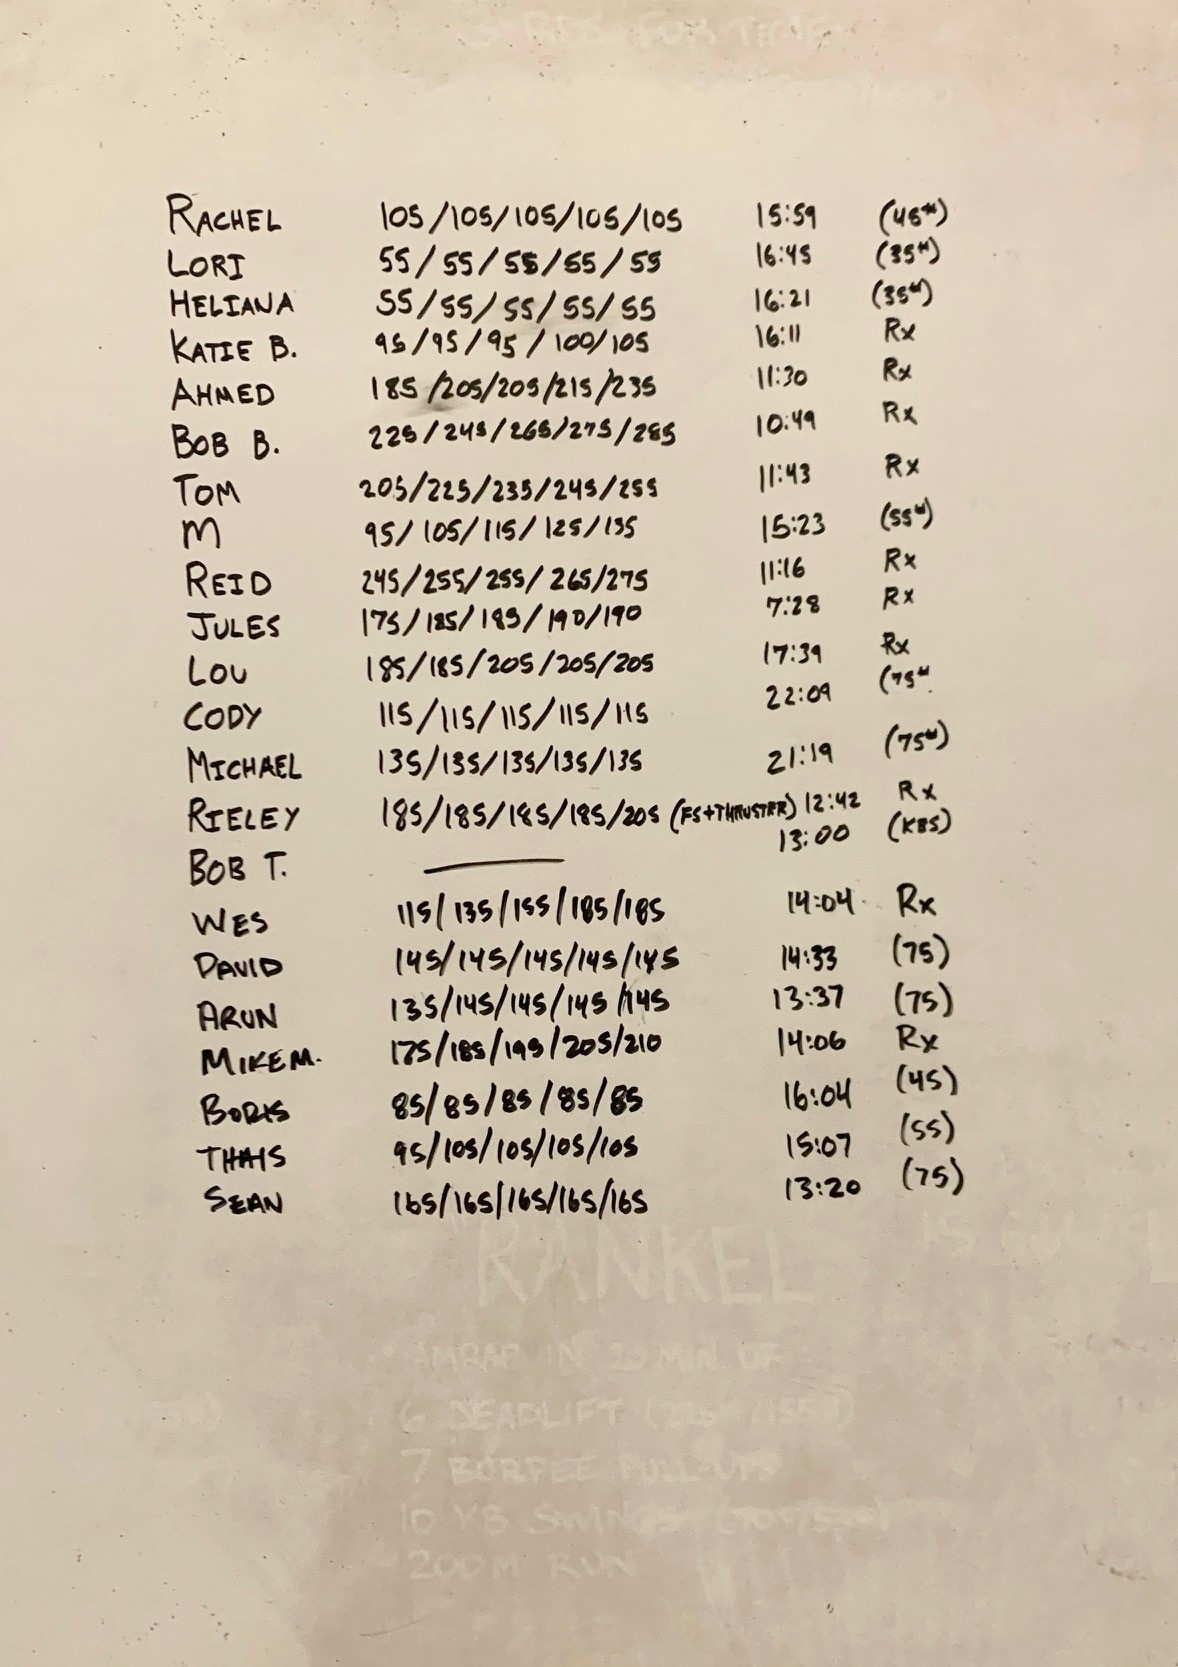 RDS FOR TIME
RACHEL 105/105/105/105/105 15:59 (45#)
LORI 55/55/55/55/55 16:45 (35#)
HELIANA 55/55/55/55/55 16:21 (35#)
KATIE B. 95/95/95/100/105 16:11 Rx
AHMED 185/205/205/215/235 11:30 Rx
BOB B. 225/245/265/275/285 10:49 Rx
TOM 205/225/235/245/255 11:43 Rx
M 95/105/115/125/135 15:23 (55#)
REID 245/255/255/265/275 11:16 Rx
JULES 175/185/185/190/190 7:28 Rx
LOU 185/185/205/205/205 17:39 Rx
CODY 115/115/115/115/115 22:09 (75#
MICHAEL 135/135/135/135/135 21:19 (75#)
RIELEY 185/185/185/185/205 (FS+THRUSTER) 12:42 Rx
BOB T. 13:00 (KBS)
WES 115/135/155/185/185 14:04 Rx
DAVID 145/145/145/145/145 14:33 (75)
ARUN 135/145/145/145/145 13:37 (75)
MIKE M. 175/185/195/205/210 14:06 Rx
BORIS 85/85/85/85/85 16:04 (45)
THAIS 95/105/105/105/105 15:07 (55)
SEAN 165/165/165/165/165 13:20 (75)
RANKEL
AMRAP IN 20 MIN OF:
6 DEADLIFT
7 BURPEE PULL-UPS
10 KB SWINGS
200M RUN